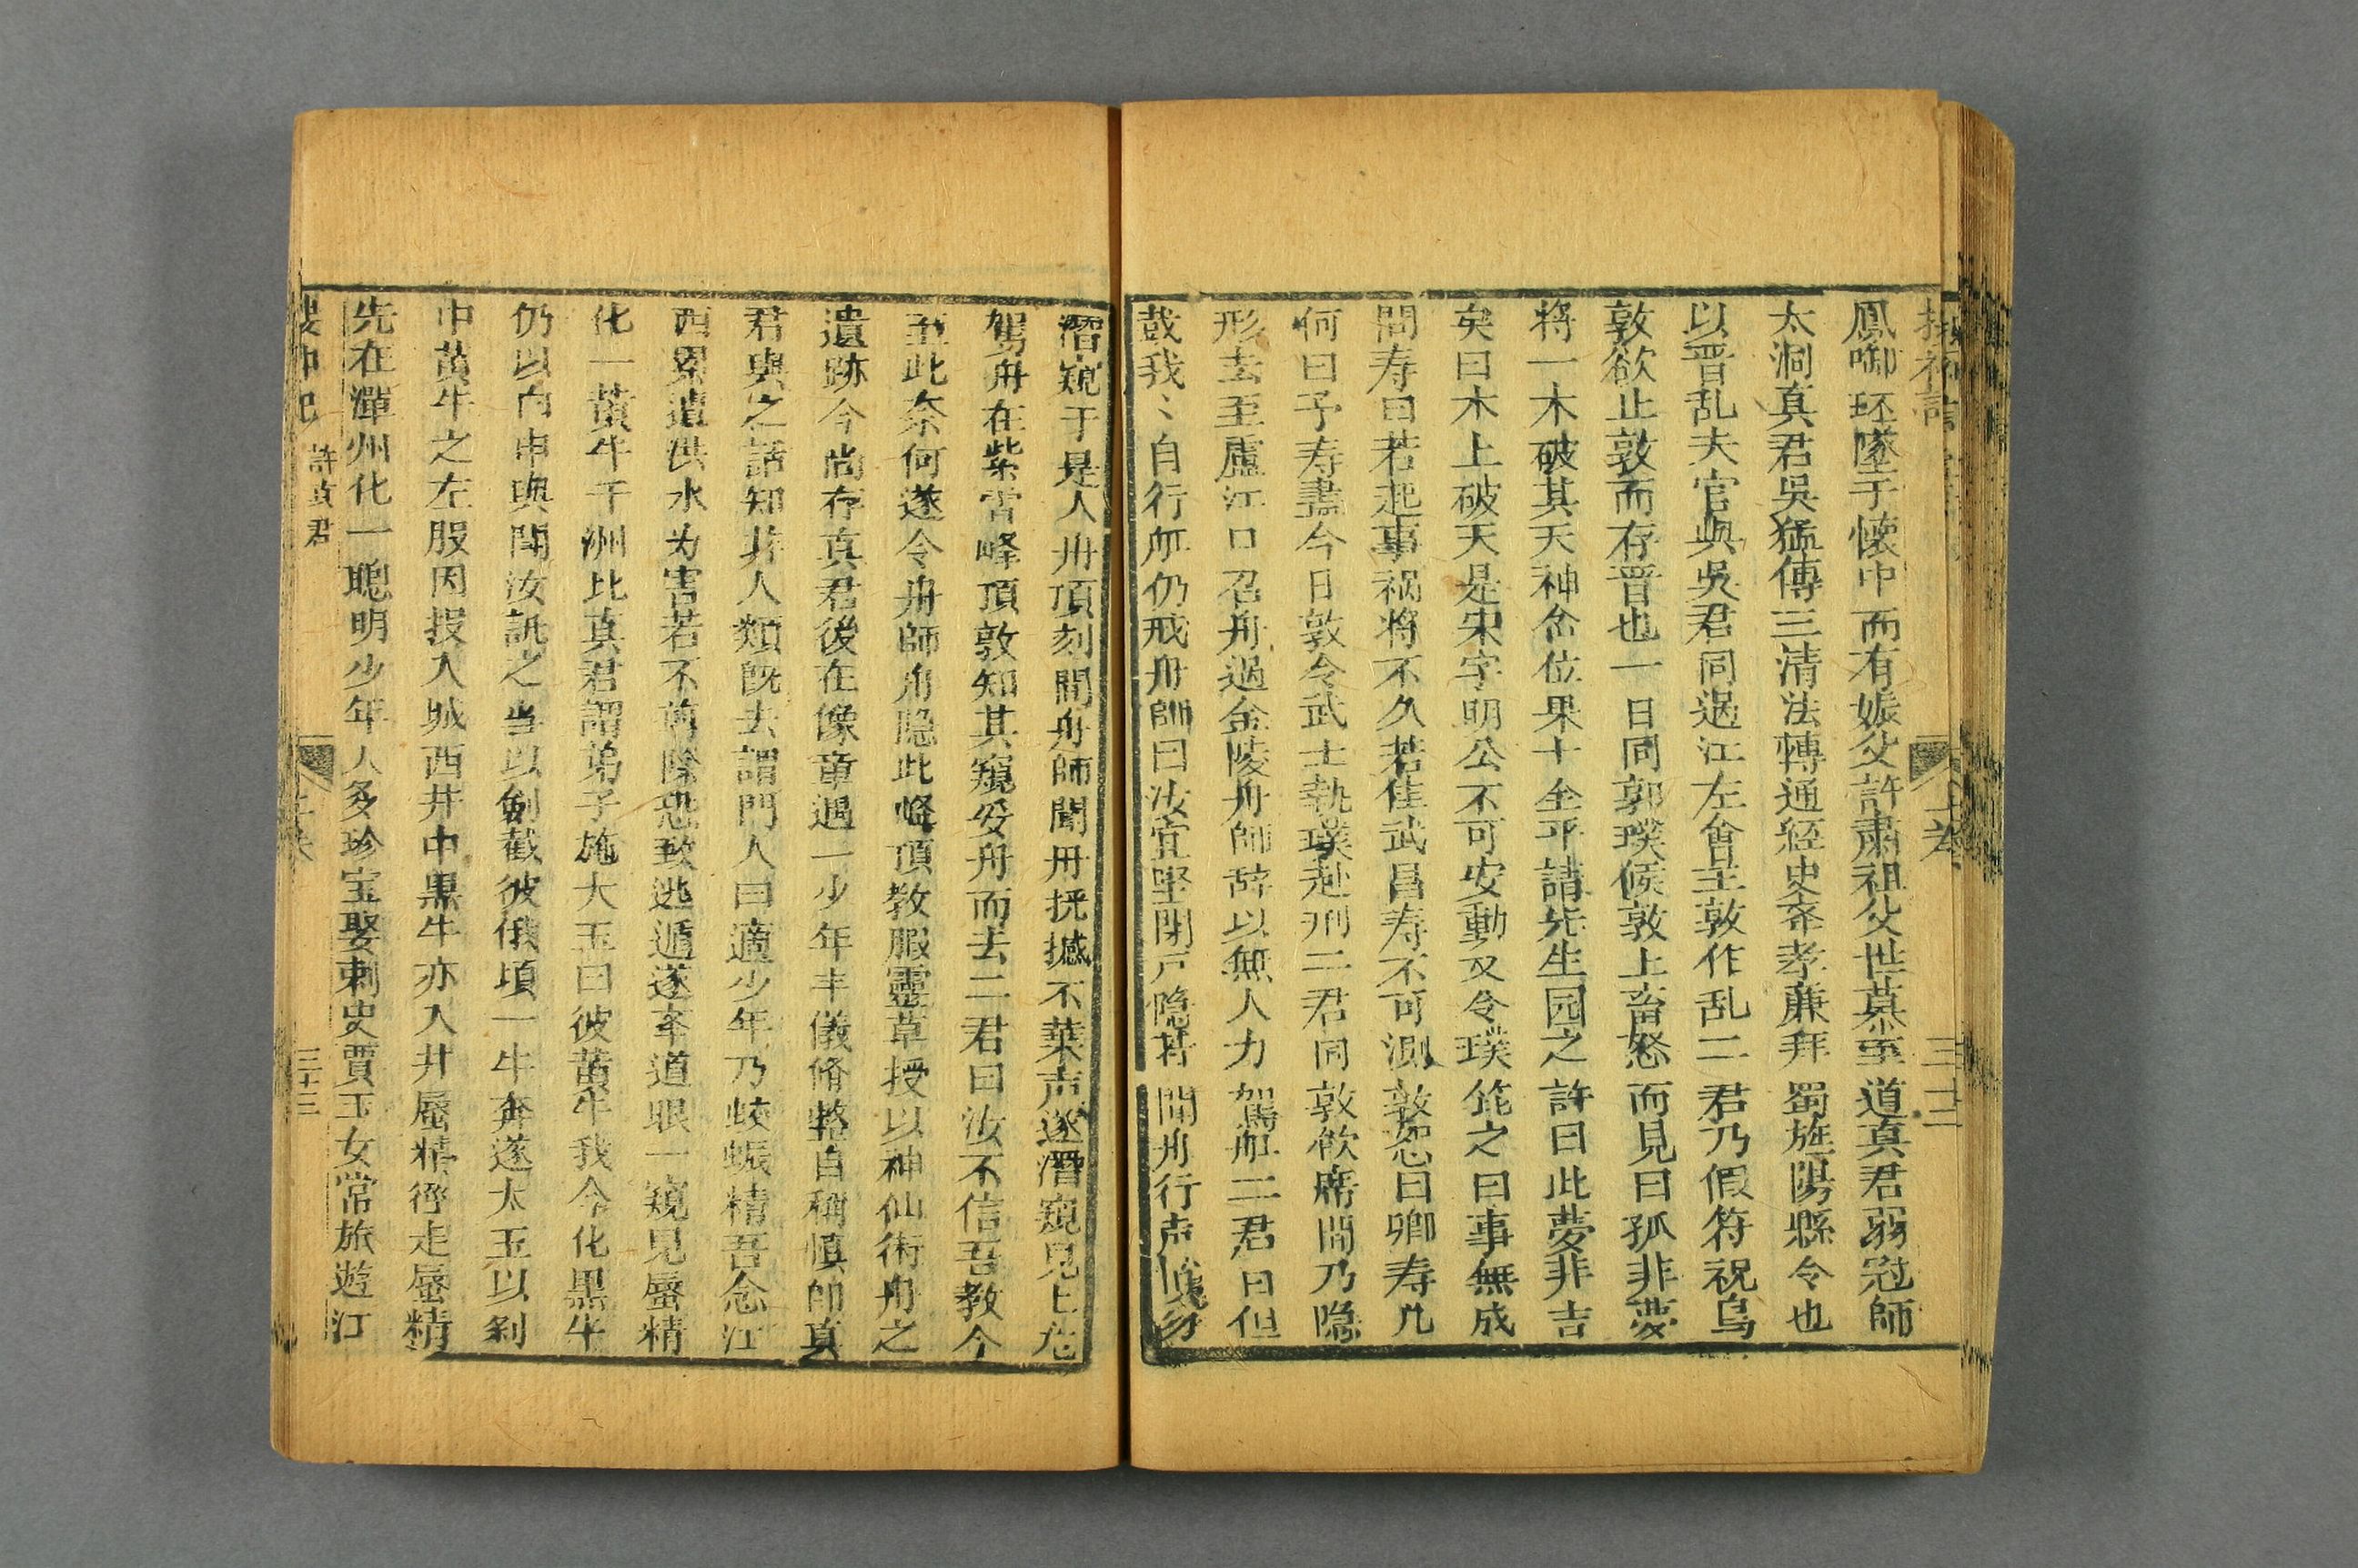 鳳啣珏墜于懷中而有娠父許肅祖父世慕至道真君弱冠師
太洞真君吳猛傳三清法轉通經史夲孝亷拜蜀旌陽縣令也
以晋乱夫官與吳君同過江左會王敦作乱二君乃假符祝烏
敦欲止敦而存晋也一日同郭璞候敦上畜怒而見曰孤非夢
將一木破其天神㕘位果十全乎請先生园之許曰此夢非吉
矣曰木上破天是未字明公不可安動又令璞筮之曰事無成
問寿曰若起事祸將不久若住武昌寿不可測敦怒曰卿寿几
何曰予寿盡今日敦令武士執璞赴刑二君同敦飲席間乃隐
形去至廬江口召舟過金陵舟師辞以無人力駕舡二君曰但
㦳我〻自行舡仍戒舟師曰汝宜堅閉户隐若聞舟行声慎勿
潛窺于是入舟頂刻間舟師聞舟撓撼木葉声遂潛窺見上龙
駕舟在紫霄峰頂敦知其窺妥舟而去二君曰汝不信吾教今
至此奈何遂令舟師舟隐此峰頂教服靈草授以神仙術舟之
遺跡今尚存真君後在像章遇一少年丰儀脩整自稱慎郎真
君與之話知非人類既去謂門人曰適少年乃蛟蜃精吾念江
西累遣洪水为害若不剪除恐致逃遁遂夲道眼一窺見蜃精
化一黃牛于洲比真君謂弟子施大玉曰彼黃牛我今化黒牛
仍以白巾與閗汝認之当以劍截彼俄頃一牛奔遂太玉以剑
中黃牛之左股因投入城西井中黒牛亦入井蜃精徑走蜃精
先在潭州化一聰明少年人多珍宝娶刺史賈玉女常旅遊江
許真君
三十三